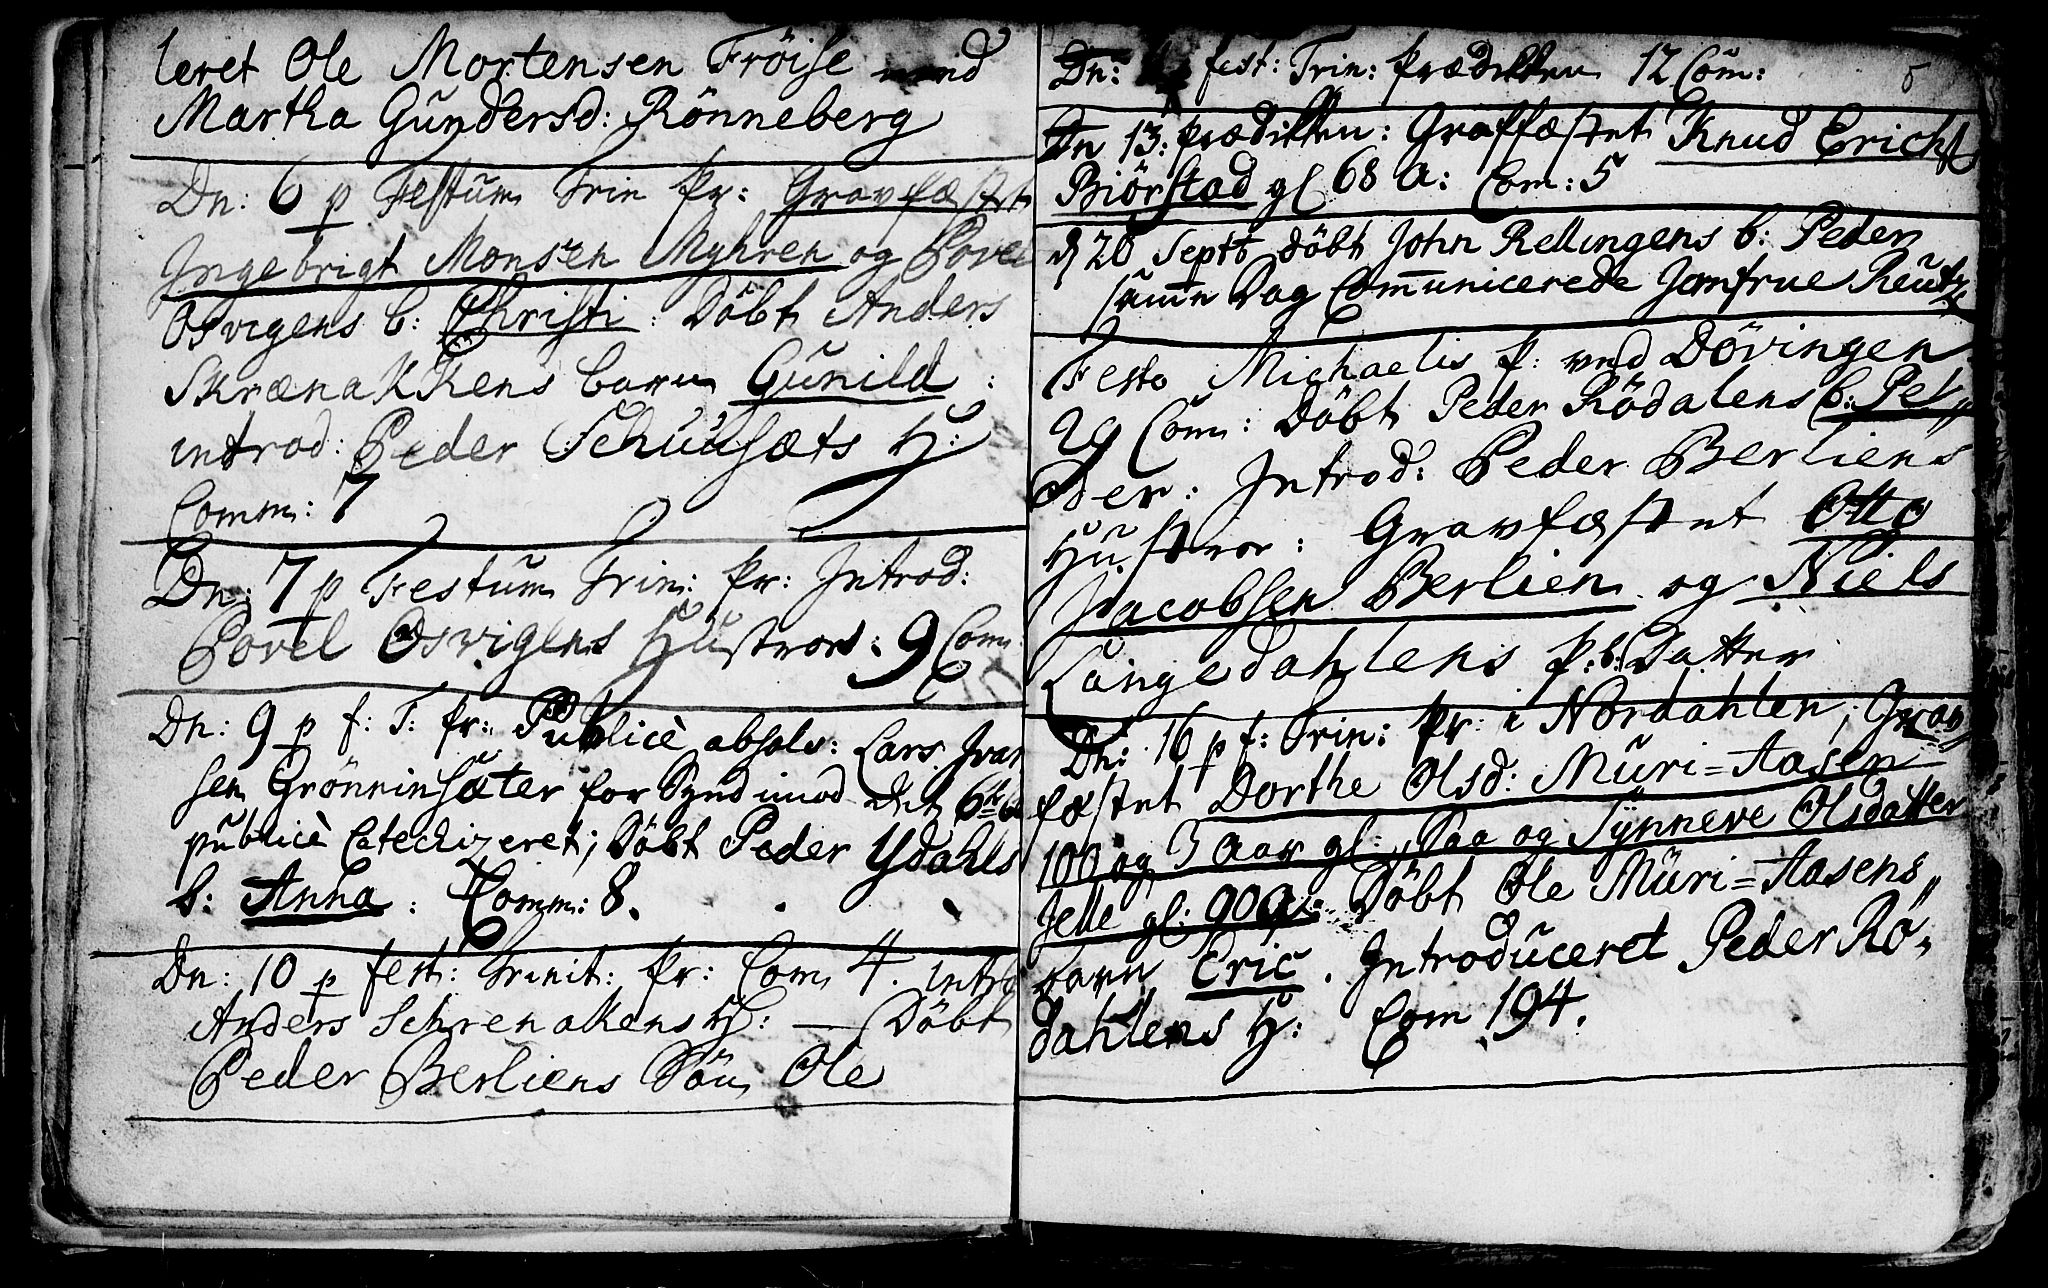 leret Ole Mortensen Fröise med
Martha Gundersd: Rönneberg
Dn: 6 p Festum Trin Pr: Gravfæstet
Ingebrigt Monsen Myhren og Povel
Osvigens b: Christi: Döbt Anders
Skrænakkens barn Gunild:
introd: Peder Schuusæts H:
Comm: 7
Dn: 7 p Festum Trin: Pr: Introd:
Povel Osvigens Hustrors: 9 Com:
Dn: 9 p f: T: Pr: Publicè absolv: Lars Ivar
sen Grönninsæter for Synd imod det 6te
publicè Catechizeret; Döbt Peder Ydahls
b: Anna: Comm: 8.
Dn: 10 p fest: Trinit: Pr: Com 4. intro
Anders Schrenakens H: — Döbt
Peder Berliens Sön Ole
5
Dn: fest: Trin: Prædikken 12 Com:
Dn 13: prædikken: Graffæstet Knud Erichs
Biörstad gl 68 a: Com: 5
d 20 Septb döbt John Rellingens b: Peder
samme Dag Communicerede Jomfrue
Festo Michaelis P: ved Dövingen
29 Com: Döbt Peder Rödalens b: Pe„
der: Introd: Peder Berliens
Hustroe: Gravfæstet Otto
Jacobsen Berlien og Niels
Langedahlens P: b: Datter
Dn: 16 p f: Trin: Pr: i Nordahlen; Grav„
fæstet Dorthe Olsd: Muri=Aasen
100 og 3 Aar gl: Saa og Synneve Olsdatter
Jelle gl: 90 a: Döbt Ole Muri=Aasens
barn Eric. Introduceret Peder Rö„
dahlens H: Com 194.